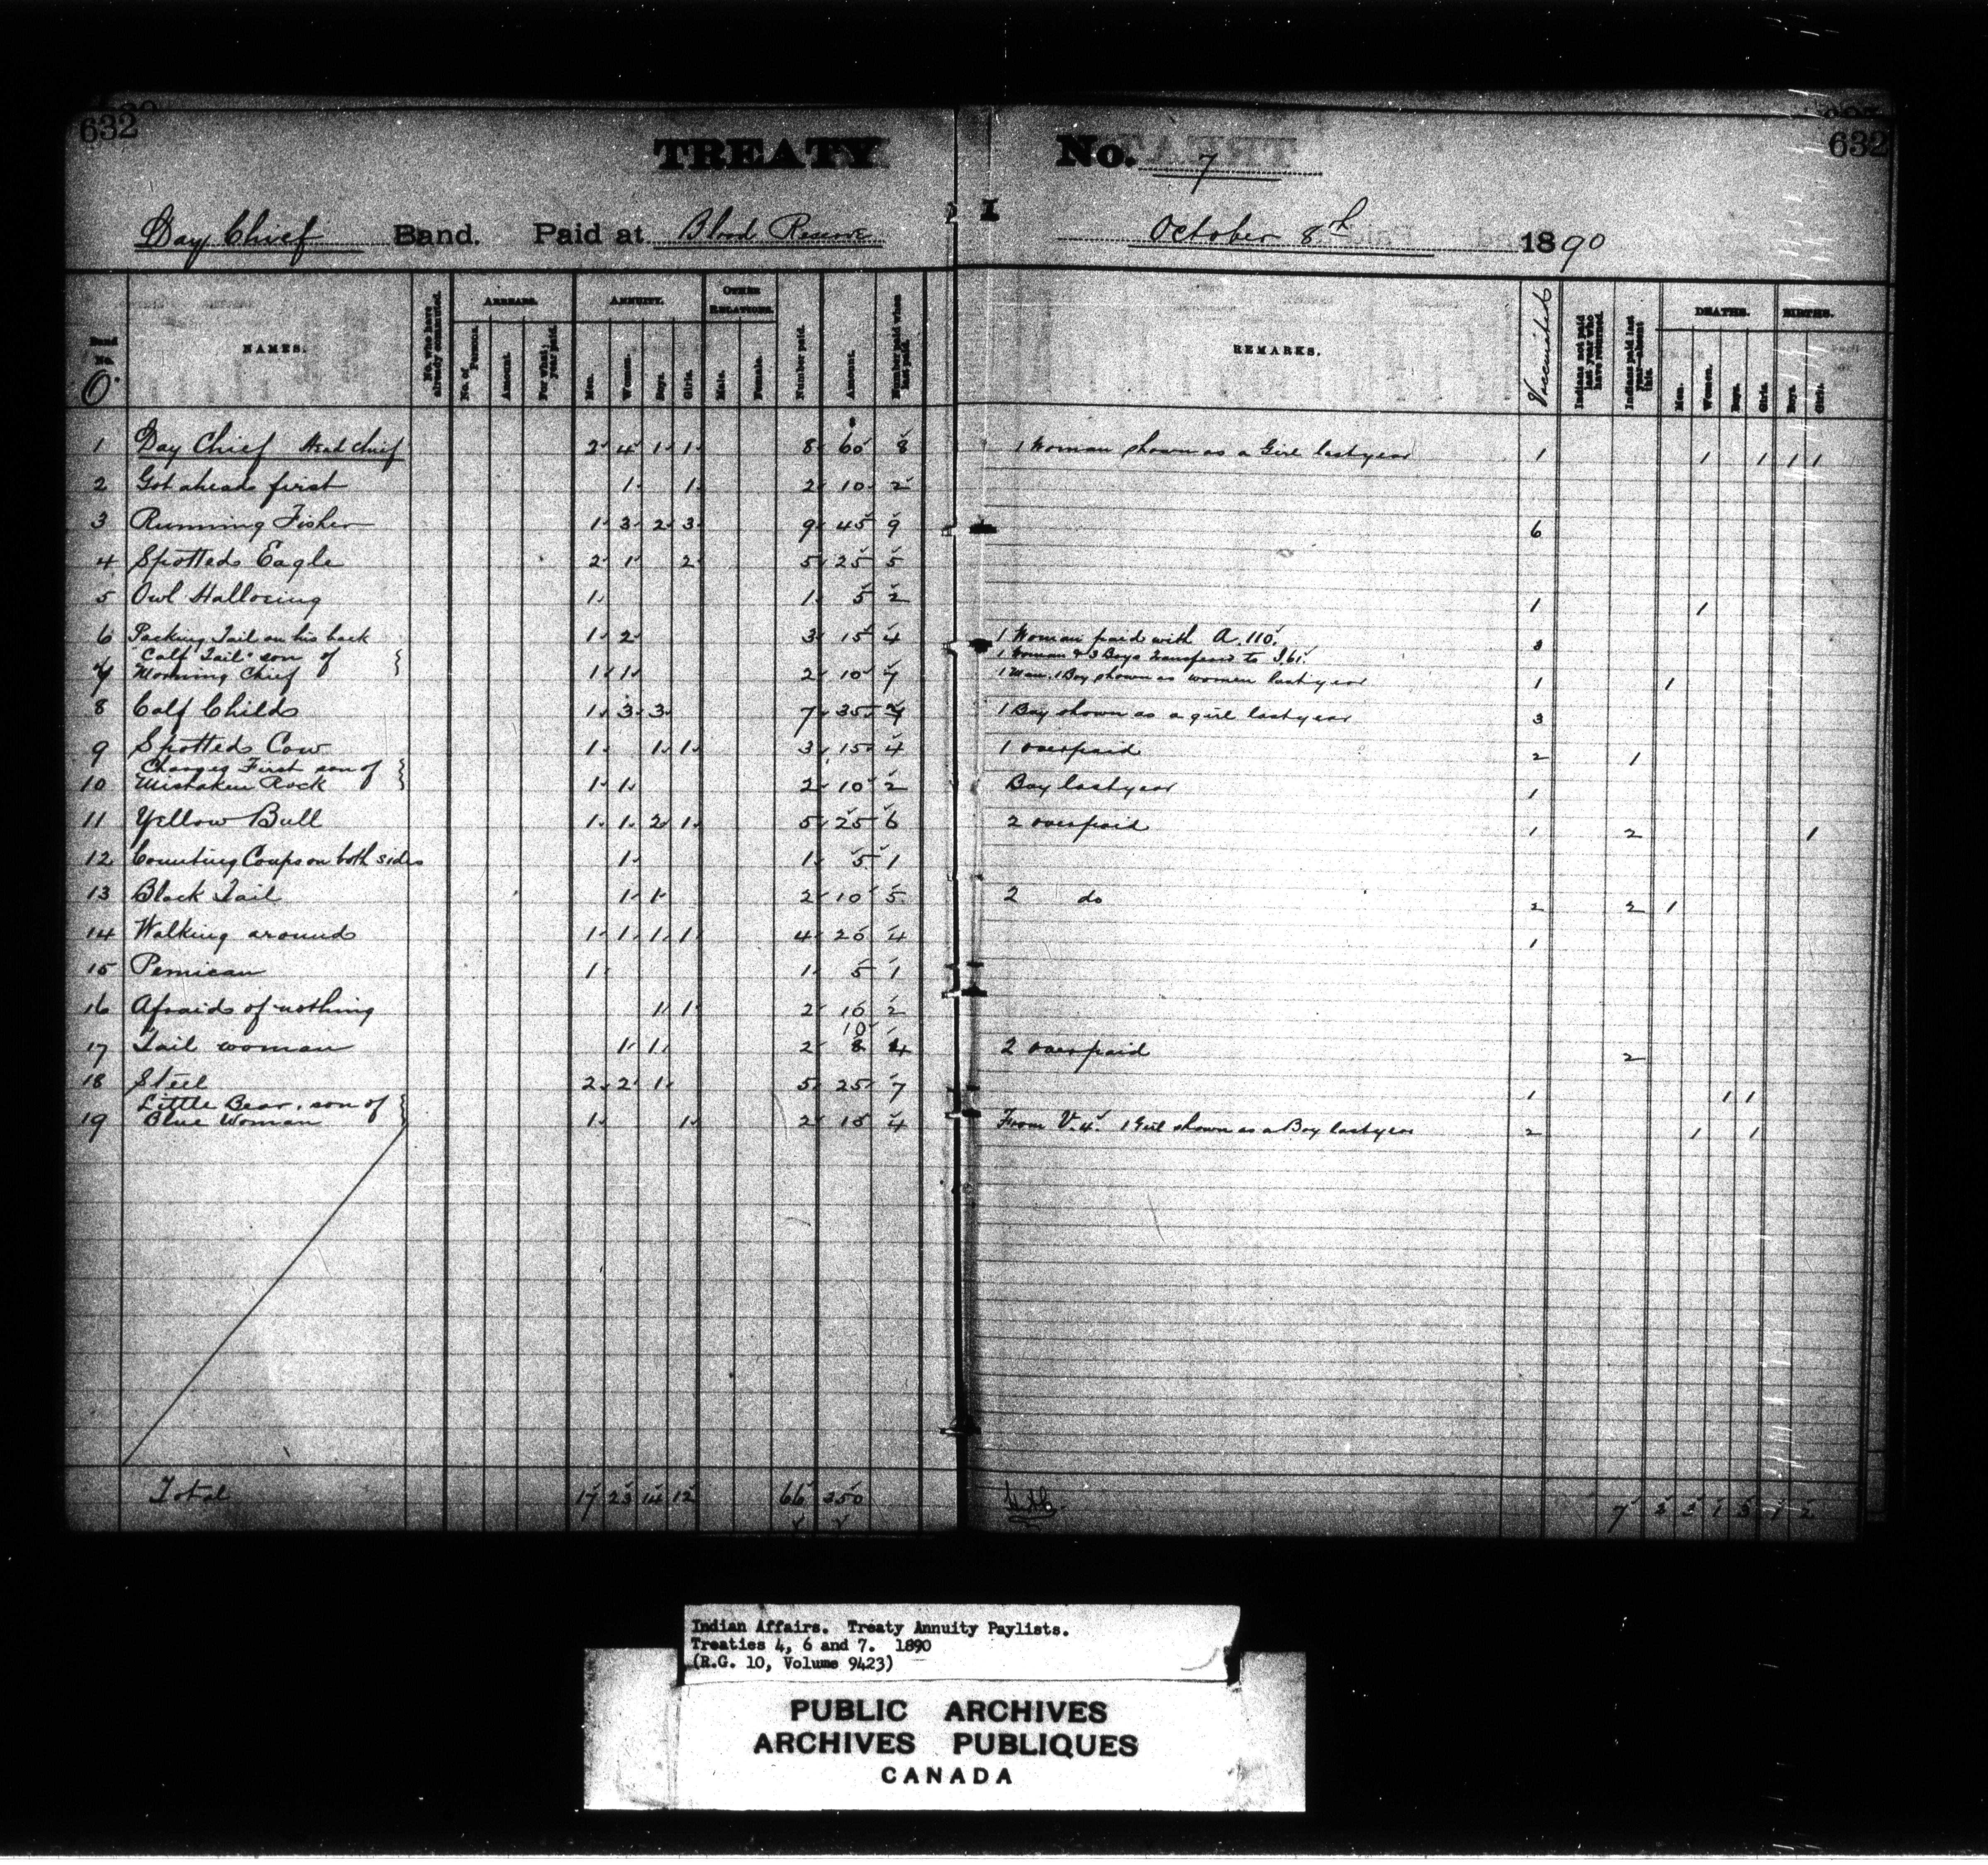 632
632
TREATY No. 7
Day Chief Band. Paid at Blood Reserve October 8th 1890
Band No. O.
NAMES.
No. who have already commuted.
ARREARS.
No. of Persons.
Amount.
For what year paid.
ANNUITY.
Men.
Women.
Boys.
Girls.
OTHER RELATIONS.
Male.
Female.
Number paid.
Amount.
Number paid when last paid.
REMARKS.
Vaccinated
Indians not paid last year who have returned.
Indians paid last year—absent this.
DEATHS.
Men.
Women.
Boys.
Girls.
BIRTHS.
Boys.
Girls.
1 Day Chief Head Chief 2 4 1 1 8 60 8 1 Woman shown as a Girl last year 1 1 1 1 1
2 Got ahead first 1 1 2 10 2
3 Running Fisher 1 3 2 3 9 45 9 6
4 Spotted Eagle 2 1 2 5 25 5
5 Owl Hallooing 1 1 5 2 1 1
6 Packing Tail on his back 1 2 3 15 4 1 Woman paid with A. 110. 3
"Calf Tail" son of 1 Woman & 3 Boys transferred to I. 61.
7 Morning Chief 1 1 2 10 7 1 Man, 1 Boy shown as women last year 1 1
8 Calf Child 1 3 3 7 35 7 1 Boy shown as a girl last year 3
9 Spotted Cow 1 1 1 3 15 4 1 overpaid 2 1
Charges First son of
10 Mistaken Rock 1 1 2 10 2 Boy last year 1
11 Yellow Bull 1 1 2 1 5 25 6 2 overpaid 1 2 1
12 Counting Coups on both sides 1 1 5 1
13 Black Tail 1 1 2 10 5 2 do 2 2 1
14 Walking around 1 1 1 1 4 20 4 1
15 Pemican 1 1 5 1
16 Afraid of nothing 1 1 2 10 2
10
17 Tail woman 1 1 2 8 4 2 overpaid 2
18 Steel 2 2 1 5 25 7 1 1 1
Little Bear, son of
19 Blue Woman 1 1 2 10 4 From V. 4. 1 Girl shown as a Boy last year 2 1 1
Total 17 23 14 12 66 350 7 2 3 1 3 1 2
Indian Affairs. Treaty Annuity Paylists.
Treaties 4, 6 and 7. 1890
(R.G. 10, Volume 9423)
PUBLIC ARCHIVES
ARCHIVES PUBLIQUES
CANADA